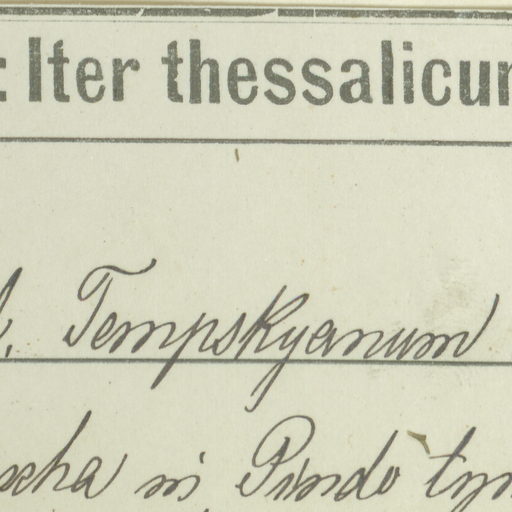 : Iter thessalicu
Tempskyanum
in Pindo